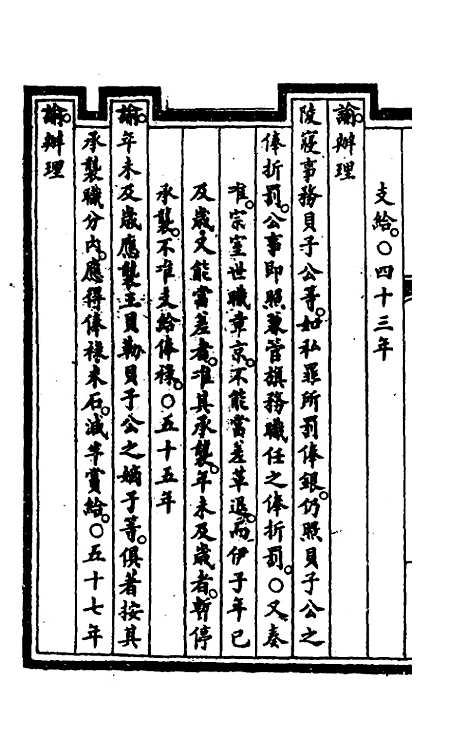 支給。○四十三年
諭。辦理
陵寢事務貝子公等。如私罪所罰俸銀。仍照貝子公之
俸折罰。公事即照兼管旗務職任之俸折罰。○又奏
准。宗室世職章京。不能當差革退。而伊子年已
及歲。又能當差者。准其承襲。年未及歲者。暫停
承襲。不准支給俸祿。○五十五年
諭。年未及歲應襲王貝勒貝子公之嫡子等。俱著按其
承襲職分內。應得俸祿米石。減半賞給。○五十七年
諭。辦理